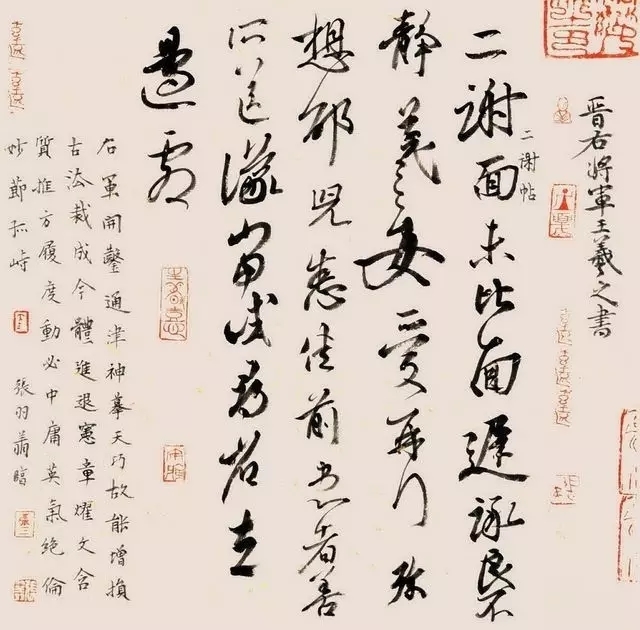 晉右將軍王羲之書
二謝帖
二謝面未比面遲詠良不
靜羲之女愛再拜
想邵兒悉佳前患者善
所送議當試尋省左
邊劇
右軍開鑿通津神摹天巧故能增損
古法裁成今體進退憲章耀文含
質推方履度動必中庸英氣絕倫
妙節孤峙
張羽翦臨